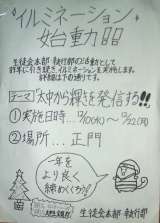 イルミネーション
始動!!
生徒会本部・執行部の活動として
昨年に引き続き、イルミネーションを実施します。
詳細は以下の通りです。
テーマ「太中から輝きを発信する!!」
①実施日時…
②場所…正門
一年を
より良く
締めくくろう!!
生徒会本部・執行部